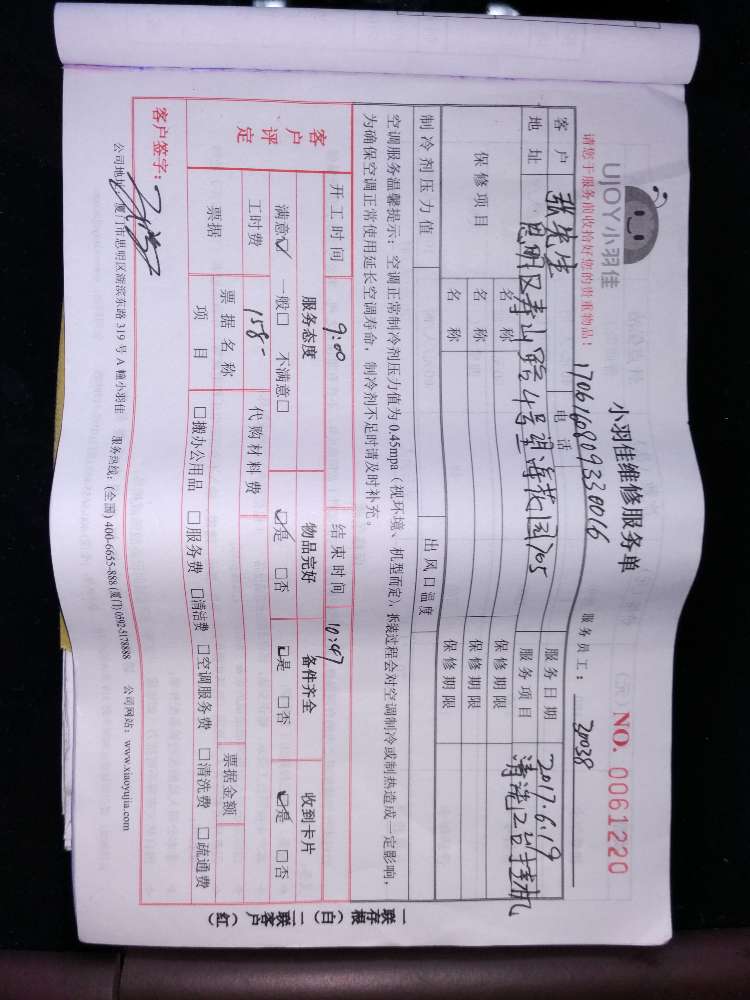 UJOY小羽佳
小羽佳维修服务单
NO. 0061220
请您于服务前收拾好您的贵重物品:
170616089330016
服务员工: 30038
客户 张先生 电话 服务日期 2017.6.19
地址 思明区寿山路4号望海花园705 服务项目 清洗2台挂机
保修项目 名称 保修期限
名称 保修期限
名称 保修期限
制冷剂压力值 出风口温度
空调服务温馨提示: 空调正常制冷剂压力值为 0.45mpa (视环境、机型而定), 拆装过程会对空调制冷或制热造成一定影响,
为确保空调正常使用延长空调寿命, 制冷剂不足时请及时补充。
开工时间 9:00 结束时间 10:47
客户评定 服务态度 物品完好 备件齐全 收到卡片
满意☑ 一般□ 不满意□ ☑是 □否 ☑是 □否 ☑是 □否
工时费 158- 代购材料费
票据 票据名称 票据金额
项目 □搬办公用品 □服务费 □清洁费 □空调服务费 □清洗费 □疏通费
客户签字:
公司地址: 厦门市思明区湖滨东路 319 号 A 幢小羽佳 服务热线: (全国) 400-6655-888 (厦门)0592-5178888 公司网站: www.xiaoyujia.com
一联存根(白) 二联客户(红)